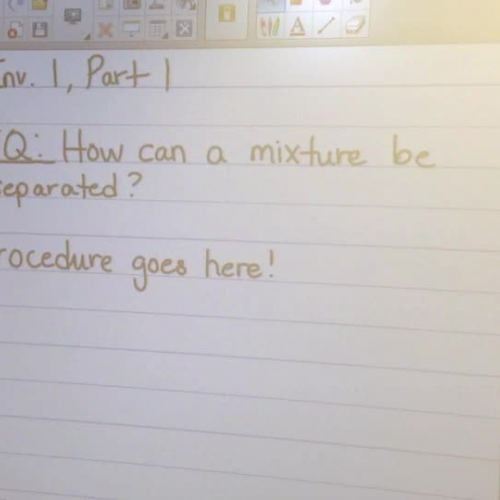 Inv. 1, Part 1
Q: How can a mixture be
separated?
Procedure goes here!